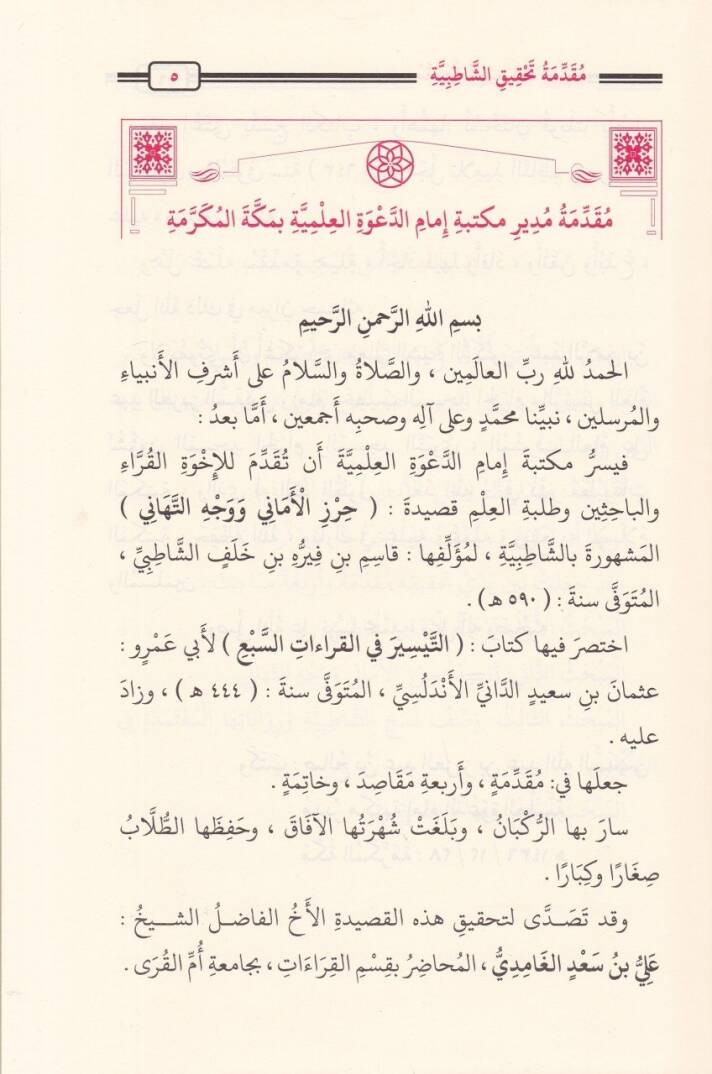 مُقَدِّمَةُ تَحْقِيقِ الشَّاطِبِيَّةِ
٥
مُقَدِّمَةُ مُدِيرِ مكتبةِ إمامِ الدَّعْوَةِ العِلْمِيَّةِ بمَكَّةَ المُكَرَّمَةِ
بسمِ اللهِ الرَّحمنِ الرَّحيمِ
الحمدُ للهِ ربِّ العالَمِين ، والصَّلاةُ والسَّلامُ على أَشرفِ الأَنبياءِ
والمُرسلين ، نبيِّنا محمَّدٍ وعلى آله وصحبِه أَجمعين ، أَمَّا بعدُ :
فيسرُّ مكتبةَ إمامِ الدَّعْوَةِ العِلْمِيَّةَ أَن تُقَدِّمَ للإِخْوَةِ القُرَّاءِ
والباحثِين وطلبةِ العِلْمِ قصيدةَ : ( حِرْزِ الْأَمَانِي وَوَجْهِ التَّهَانِي )
المَشهورةَ بالشَّاطِبِيَّةِ ، لمُؤَلِّفِها : قاسِمِ بنِ فِيرُّه بنِ خَلَفٍ الشَّاطِبِيِّ ،
المُتَوَفَّى سنةَ : ( ٥٩٠ هـ ) .
اختصرَ فيها كتابَ : ( التَّيْسِيرَ في القراءاتِ السَّبْعِ ) لأَبي عَمْرٍو :
عثمانَ بنِ سعيدٍ الدَّانيِّ الأَنْدَلُسِيِّ ، المُتَوَفَّى سنةَ : ( ٤٤٤ هـ ) ، وزادَ
عليه .
جعلَها في: مُقَدِّمَةٍ ، وأَربعةِ مَقَاصِدَ ، وخاتِمَةٍ .
سارَ بها الرُّكْبَانُ ، وبَلَغَتْ شُهْرَتُها الآفَاقَ ، وحَفِظَها الطُّلَّابُ
صِغَارًا وكِبَارًا .
وقد تَصَدَّى لتحقيقِ هذه القصيدةِ الأَخُ الفاضلُ الشيخُ :
عَلِيُّ بنُ سَعْدٍ الغَامِدِيُّ ، المُحاضِرُ بقِسْمِ القِرَاءَاتِ ، بجامعةِ أُمِّ القُرَى .